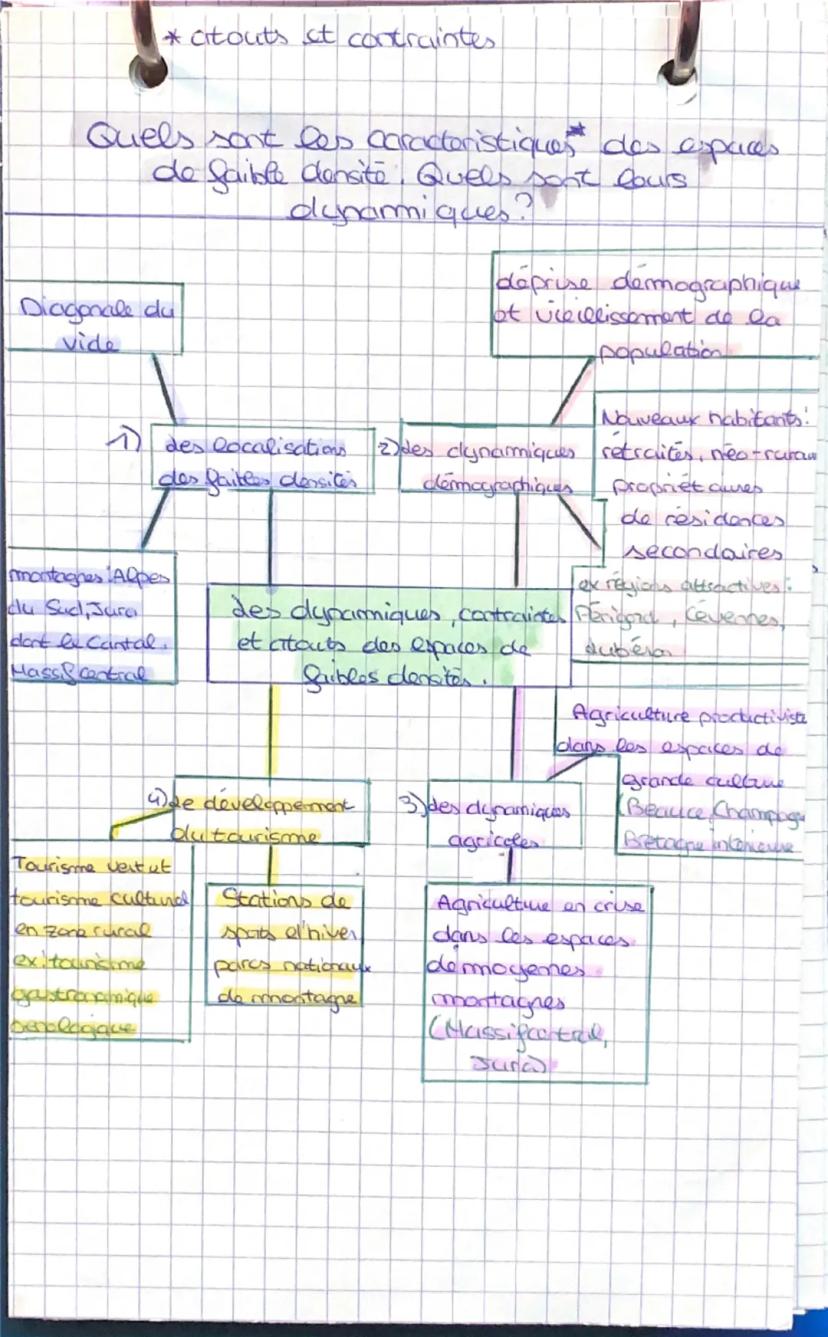 * atouts et contraintes
Quels sont les caractéristiques* des espaces
de faible densité. Quels sont leurs
dynamiques?
Diagonale du
vide
déprise démographique
et vieillissement de la
population
1) des localisations
des faibles densités
2) des dynamiques
démographiques
Nouveaux habitants:
retraités, néo-ruraux
propriétaires
de résidences
secondaires
ex régions attractives:
Périgord, Cévennes,
Lubéron
montagnes: Alpes
du Sud, Jura
dont le Cantal,
Massif central
des dynamiques, contraintes
et atouts des espaces de
faibles densités.
Agriculture productiviste
dans les espaces de
grande culture
(Beauce, Champagne
Bretagne intérieure
4) le développement
du tourisme
3) des dynamiques
agricoles
Tourisme vert et
tourisme culturel
en zone rural
ex: tourisme
gastronomique
oenologique
Stations de
spots d'hiver
parcs nationaux
de montagne
Agriculture en crise
dans les espaces
de moyenes
montagnes
(Massif central,
Jura)